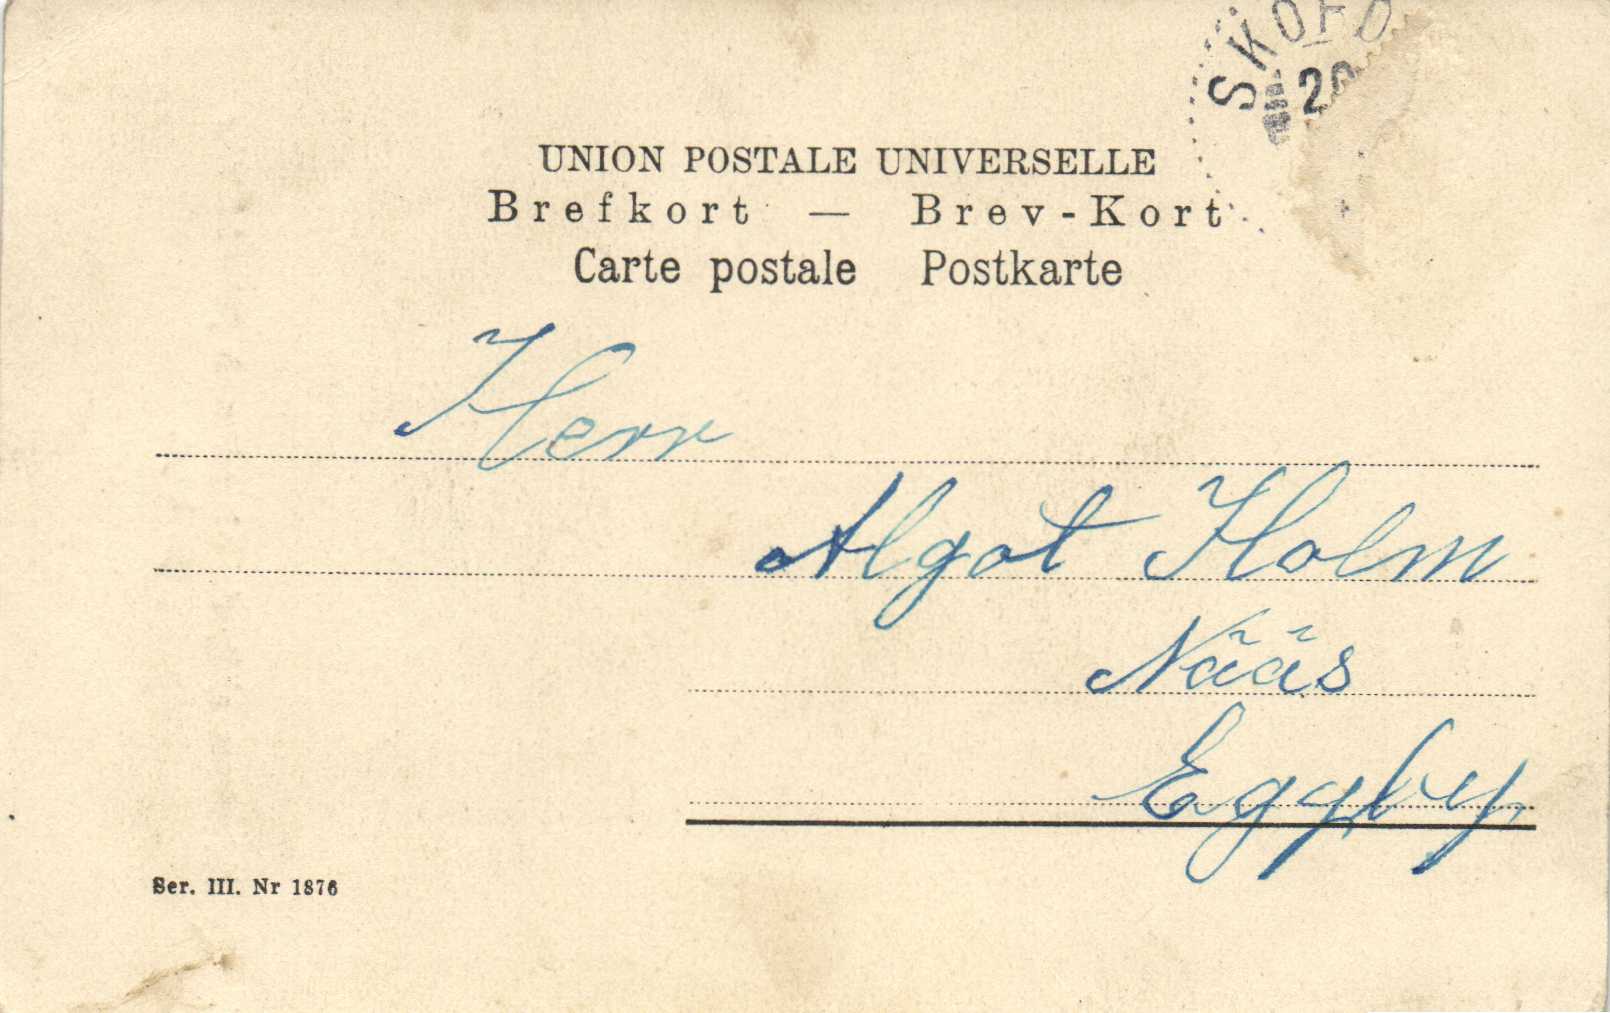 SKÖFD
20
UNION POSTALE UNIVERSELLE
Brefkort — Brev-Kort
Carte postale Postkarte
Herr
Algot Holm
Nääs
Eggby,
Ser. III. Nr 1876